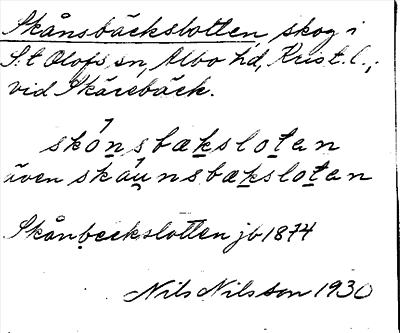 Skånsbäckslotten, skog i
S:t Olofs sn, Albo hd, Krist. l.,
vid Skärebäck.
skónsbæksloten
även skáu̯nsbæksloten
Skånbeckslotten jb 1874
Nils Nilsson 1930